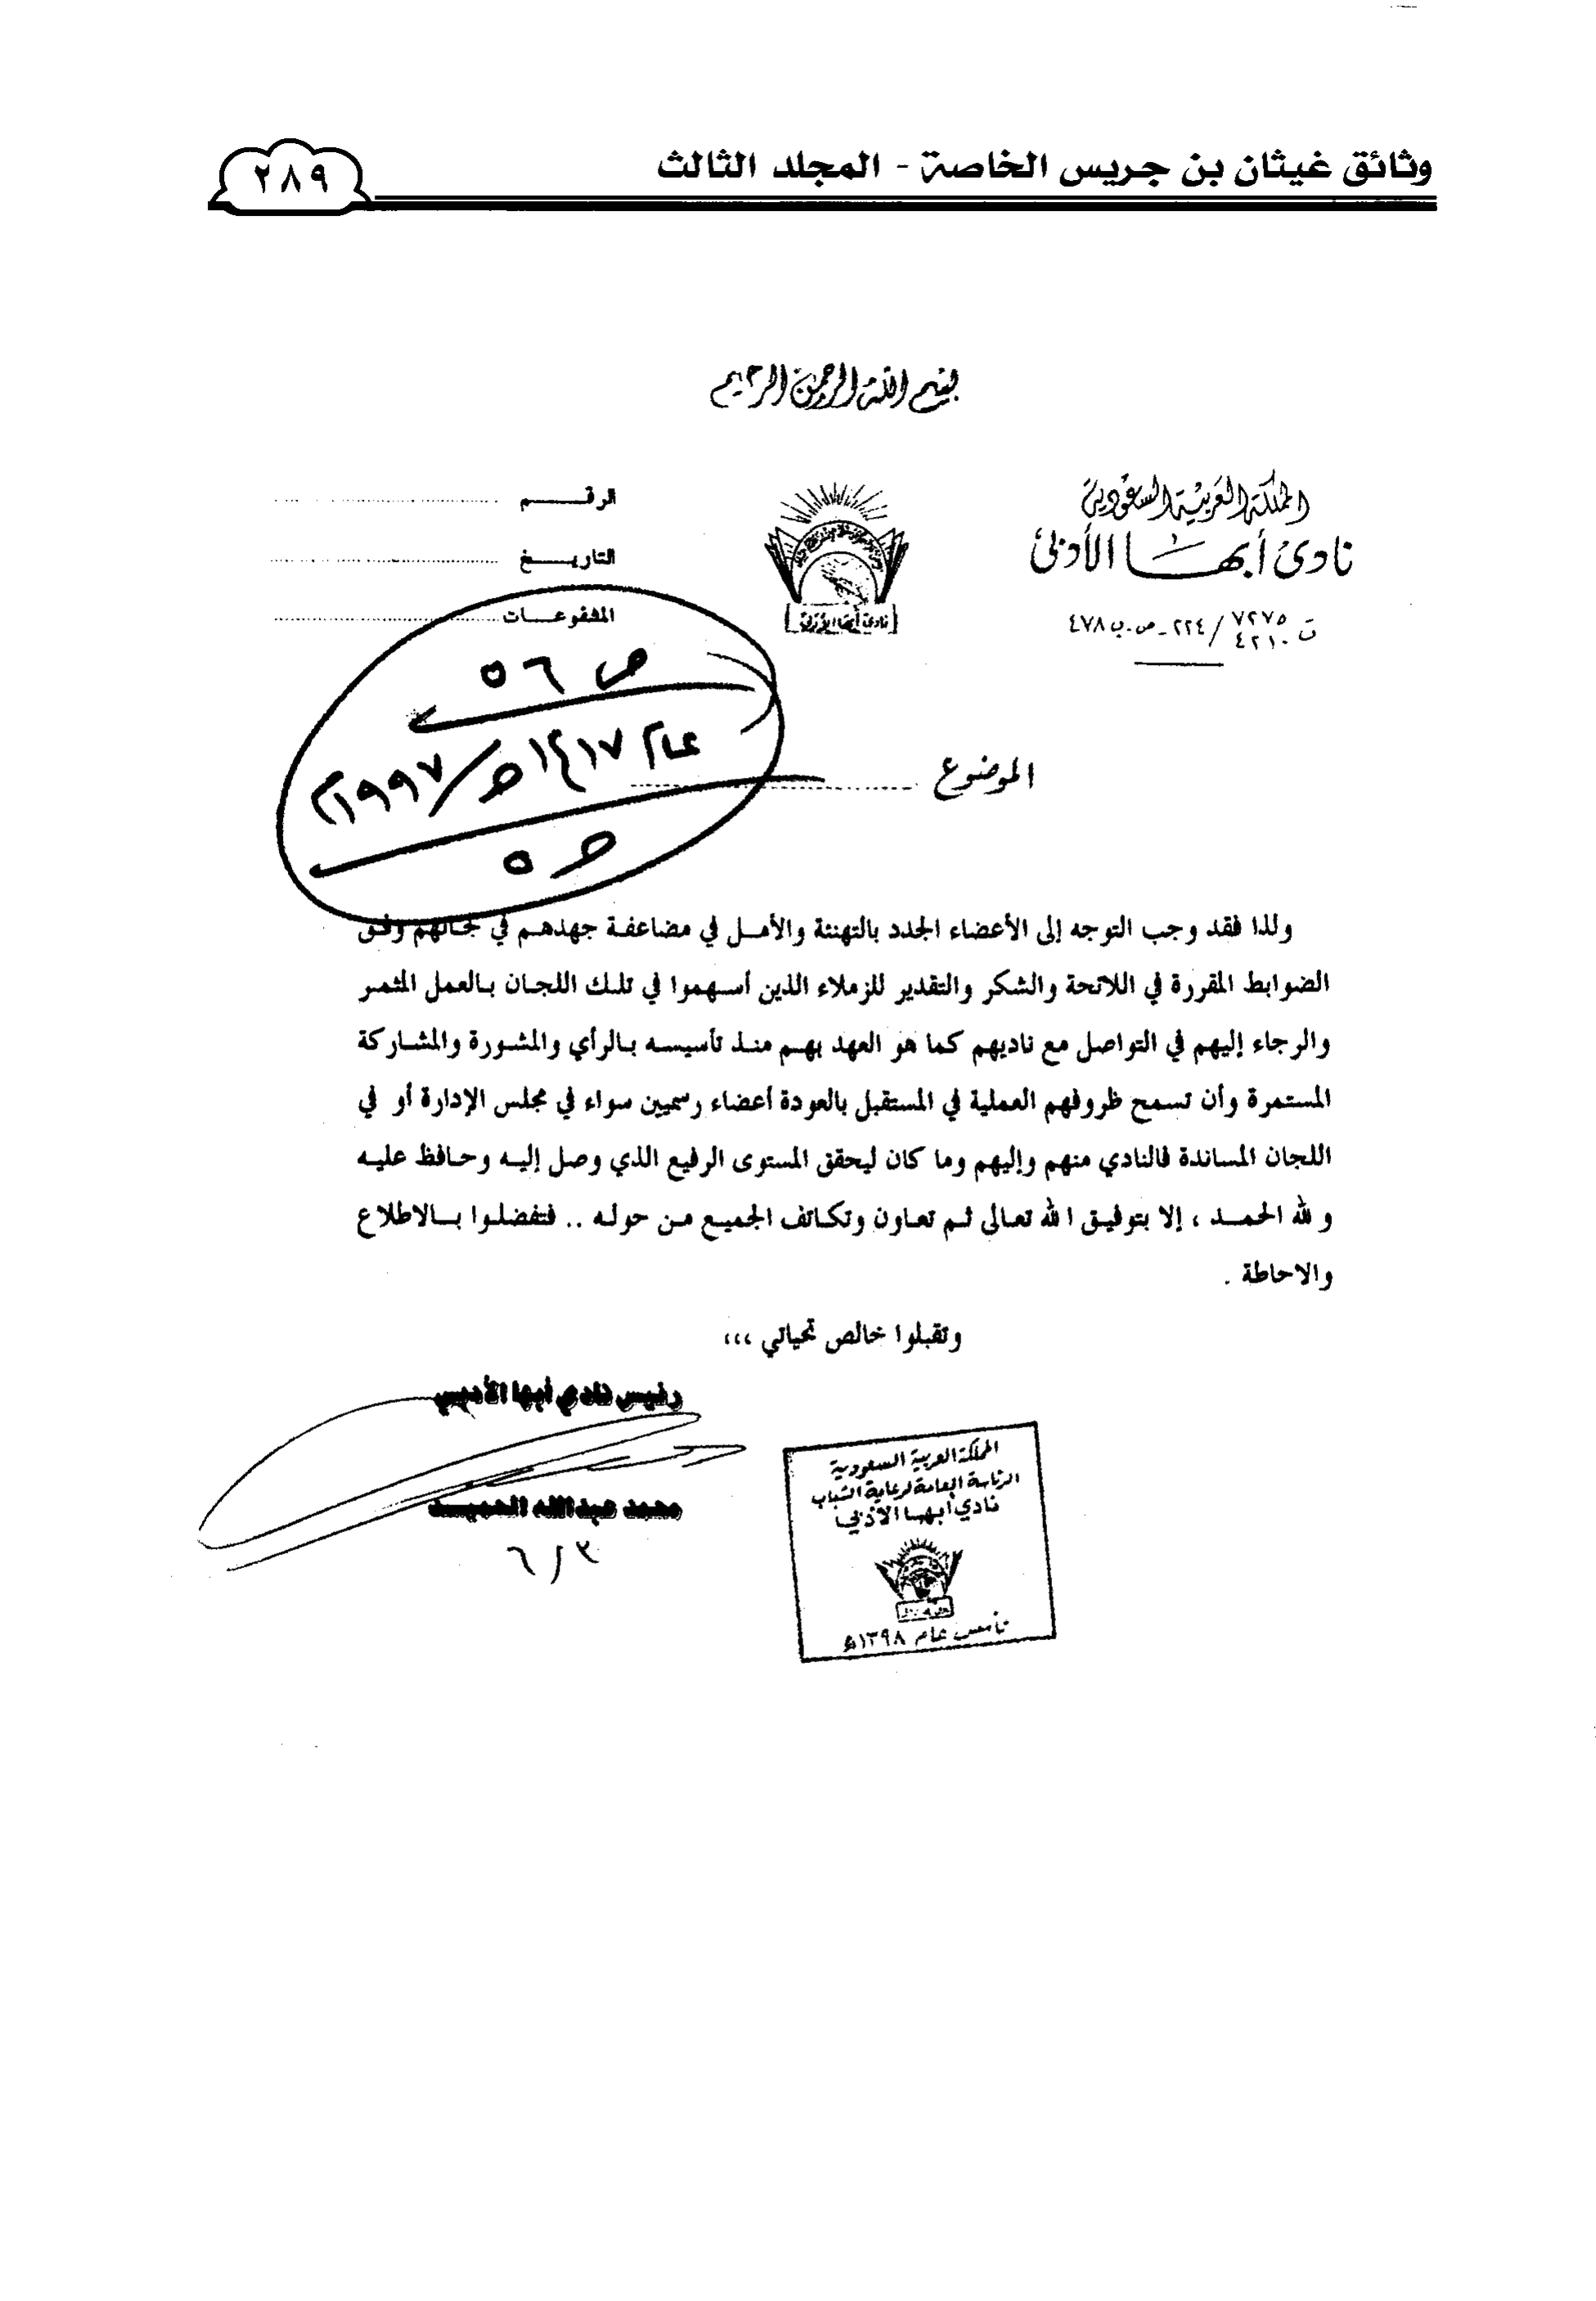 وثائق غيثان بن جريس الخاصة - المجلد الثالث
٢٨٩
بسم الله الرحمن الرحيم
المملكة العربية السعودية
نادى أبها الأدبى
ت ٧٢٧٥ / ٢٢٤ - ص.ب ٤٧٨
٤٢١٠
نادى أبها الأدبى
الرقم
التاريخ
المشفوعات
ص ٥٦
عام ١٤١٧هـ/١٩٩٧م
ص ٥
الموضوع
ولذا فقد وجب التوجه إلى الأعضاء الجدد بالتهنئة والأمل في مضاعفة جهدهم في مجالهم وفق
الضوابط المقررة في اللائحة والشكر والتقدير للزملاء الذين أسهموا في تلك اللجان بالعمل المثمر
والرجاء إليهم في التواصل مع ناديهم كما هو العهد بهم منذ تأسيسه بالرأي والمشورة والمشاركة
المستمرة وأن تسمح ظروفهم العملية في المستقبل بالعودة أعضاء رسميين سواء في مجلس الإدارة أو في
اللجان المساندة فالنادي منهم وإليهم وما كان ليحقق المستوى الرفيع الذي وصل إليه وحافظ عليه
ولله الحمد ، إلا بتوفيق الله تعالى ثم تعاون وتكاتف الجميع من حوله .. فتفضلوا بالاطلاع
والاحاطة .
وتقبلوا خالص تحياتي ،،،
رئيس نادي أبها الأدبي
محمد عبدالله الحميد
٦/٣
المملكة العربية السعودية
الرئاسة العامة لرعاية الشباب
نادي أبها الأدبي
تأسس عام ١٣٩٨ه